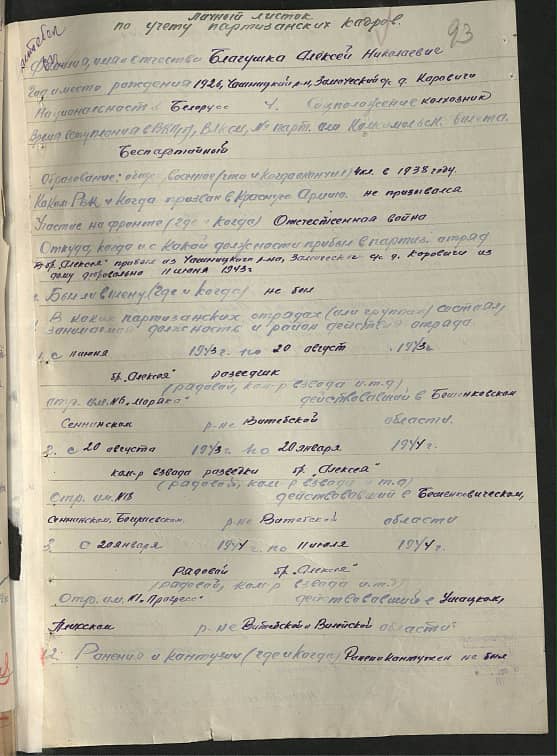 Личный листок
по учету партизанских кадров. 93
Фамилия, имя и отчество Благушка Алексей Николаевич
Год и место рождения 1926, Чашницкий р-н, Заможский с/с д. Коровичи
Национальность Белорус Соцположение колхозник
Время вступления в ВКП/б/, ВЛКСМ, № парт. или Комсомольск. билета.
Беспартийный
Образование: общее, военное (что и когда окончил) 4 кл. в 1938 году.
Каким РВК и когда призван в Красную Армию. не призывался
Участие на фронте (где и когда) Отечественная война
Откуда, когда и с какой должности прибыл в партиз. отряд
В бр. „Алексея" прибыл из Чашницкого р-на, с/с д. Коровичи из
дому добровольно 11 июня 1943 г
Был ли в плену (где и когда) не был
В каких партизанских отрядах (или группах) состоял,
занимаемая должность и район действия отряда
1. с июня 1943 г. по 20 август 1943 г.
бр. „Алексея" разведчик
(рядовой, ком-р взвода и.т.д)
отр. им. №6 „Моряка" действовавший в Бешенковском
Сеннинском р-не Витебской области.
2. с 20 августа 1943 г. по 20 января 1944 г.
ком-р взвода разведки бр. „Алексея"
(рядовой, ком-р взвода и.т.д)
Отр. им. №3 действовавший в Бешенковичском,
Сеннинском, р-не Витебской области
3. с 20 января 1944 г. по 11 июля 1944 г.
Рядовой бр. „Алексея"
(рядовой, ком-р взвода и.т.д)
Отр. им. „Прогресс" действовавший в Ушацком,
р-не Витебской и Вилейской области
12. Ранение и контузии (где и когда) Ранен и контужен не был